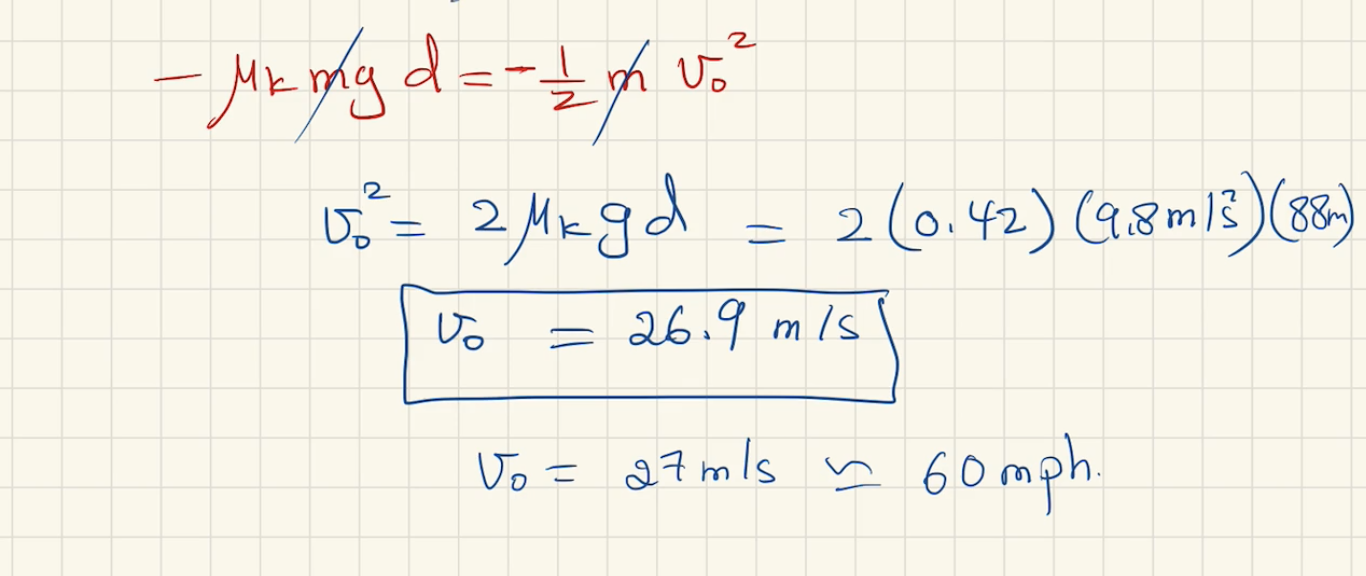 - μk mg d = - 1/2 m v₀²
v₀² = 2 μk g d = 2 (0.42) (9.8 m/s²) (88m)
v₀ = 26.9 m/s
v₀ = 27 m/s ≃ 60 mph.